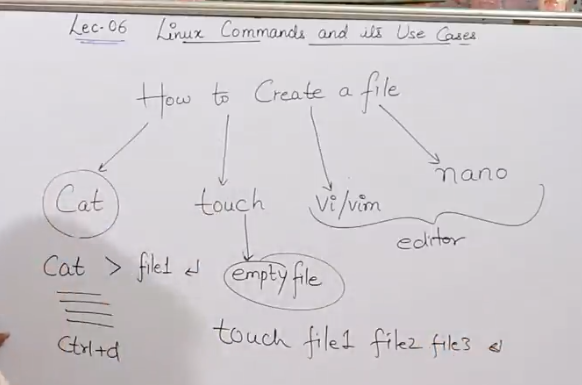 Lec-06 Linux Commands and its Use Cases
How to Create a file
Cat touch vi/vim nano
editor
Cat > file1 ↲
empty file
Ctrl+d
touch file1 file2 file3 ↲